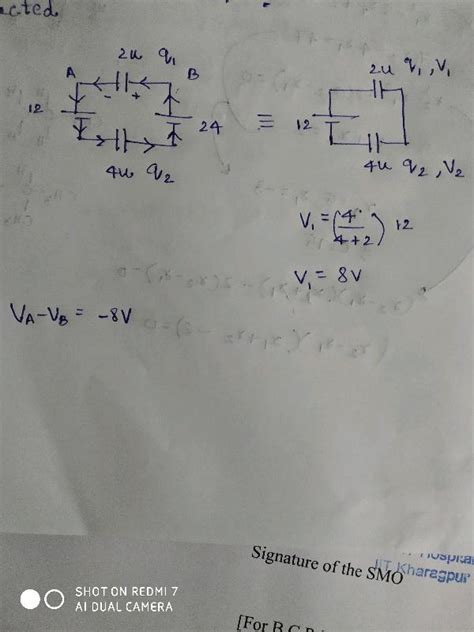 cted.
2u q1
A B
12
24
4u q2
≡
2u q1, V1
12
4u q2, V2
V1 = (4/4+2) 12
V1 = 8V
VA-VB = -8V
Signature of the SMO
IIT Kharagpur
SHOT ON REDMI 7
AI DUAL CAMERA